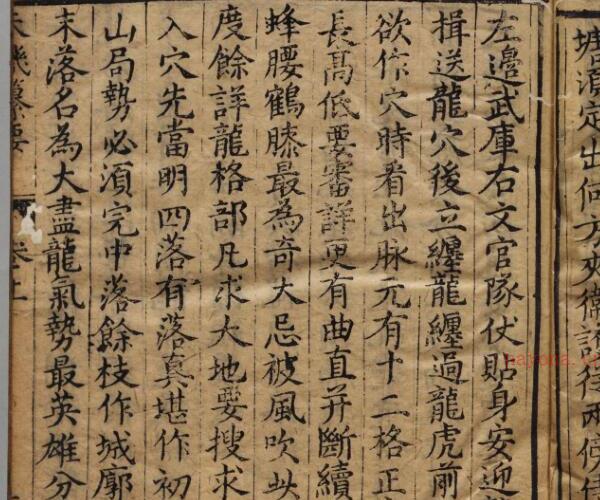 塘湏定出何方夾衛諸從兩傍
左邊武庫右文官隊仗貼身安迎
揖送龍穴後立纏龍纏過龍虎前
欲作穴時看出脉元有十二格正
長高低要審詳更有曲直并斷續
蜂腰鶴膝最為奇大忌被風吹此
度餘詳龍格部凡求大地要搜求
入穴先當明四落有落真堪作初
山局勢必湏完中落餘枝作城廓
末落名為大盡龍氣勢最英雄分
天機纂要
卷上